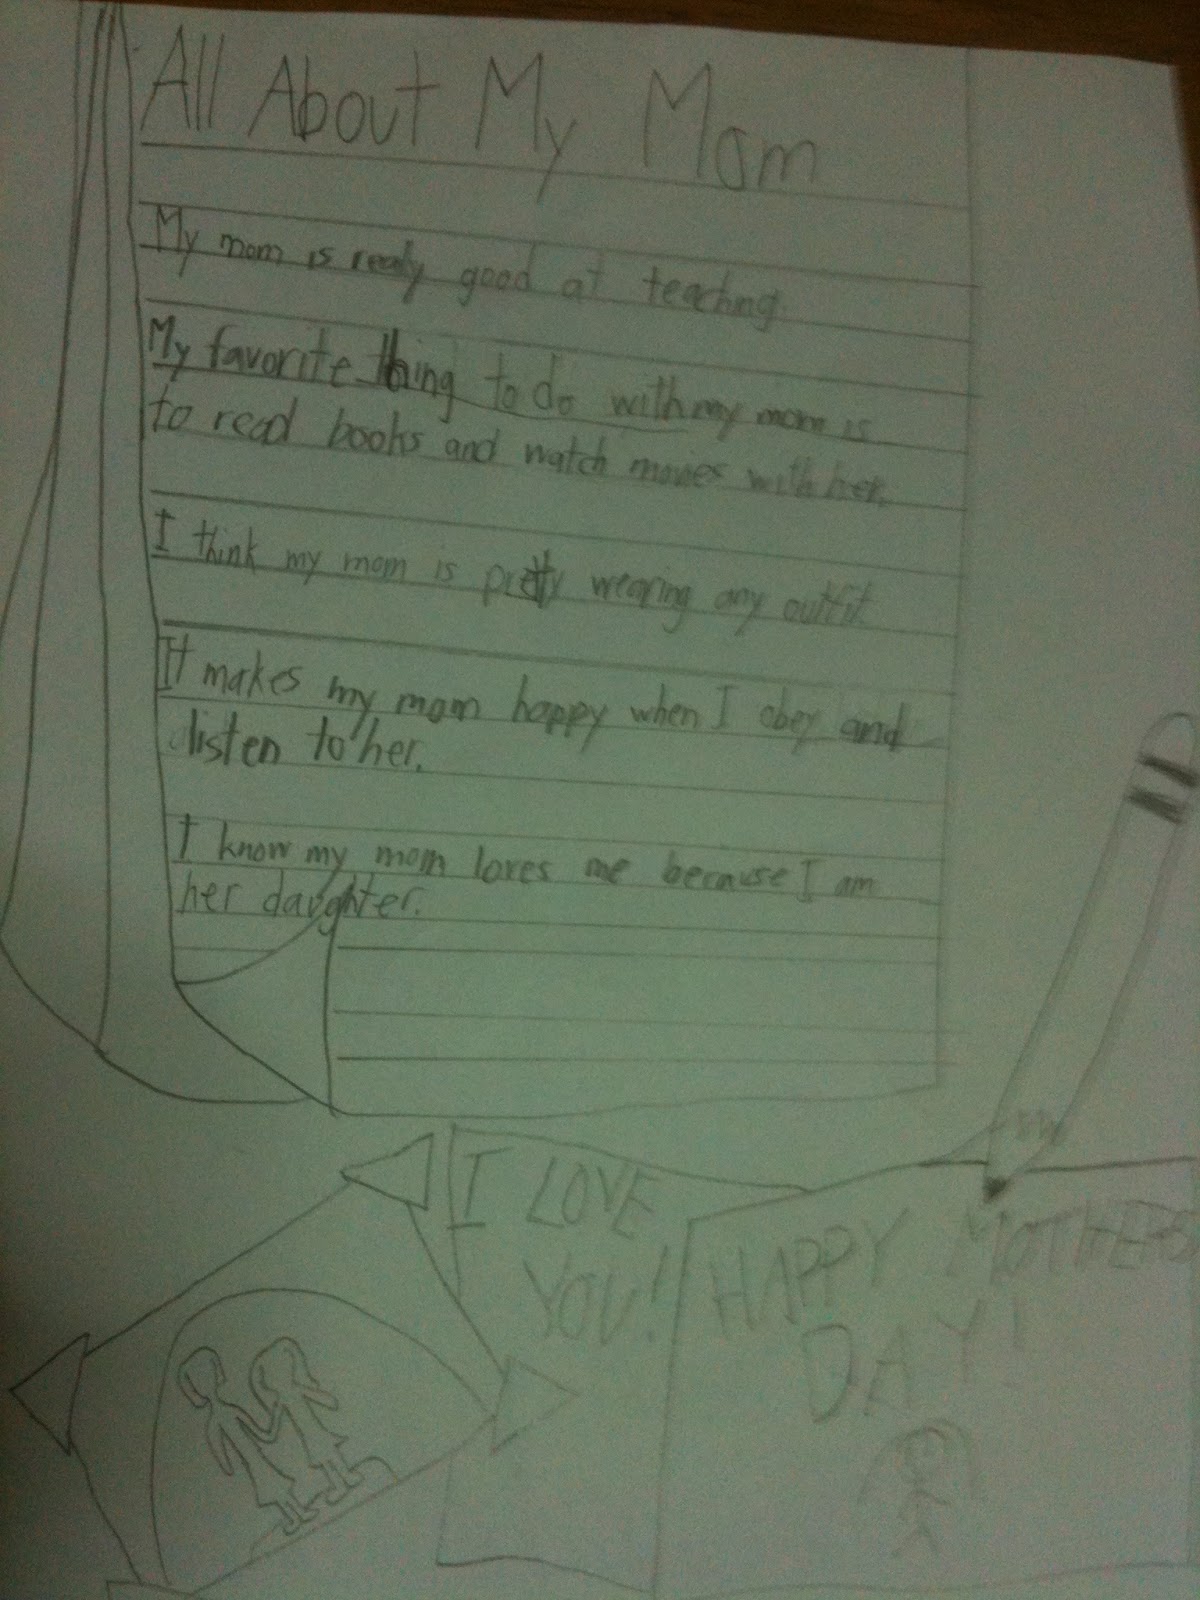 All About My Mom
My mom is really good at teaching.
My favorite thing to do with my mom is
to read books and watch movies with her.
I think my mom is pretty wearing any outfit
It makes my mom happy when I obey and
listen to her.
I know my mom loves me because I am
her daughter.
I LOVE
YOU!
HAPPY MOTHERS
DAY!